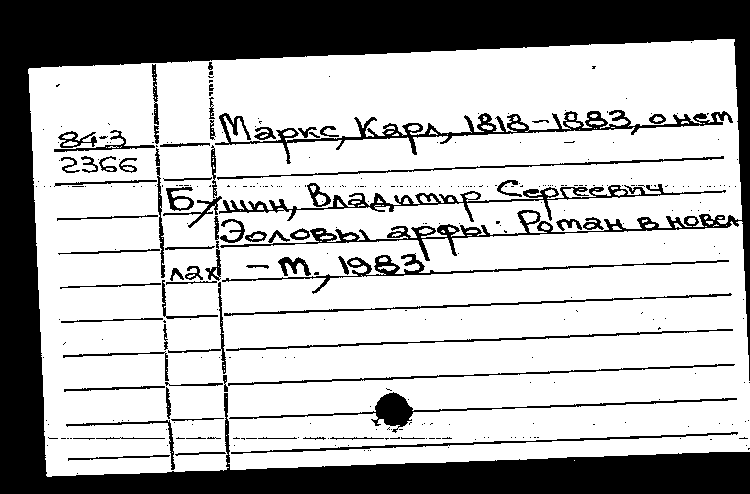 84-3 Маркс, Карл, 1818-1883, о нем
2366
Бушин, Владимир Сергеевич
Эоловы арфы: Роман в новел
лах. - М., 1983.